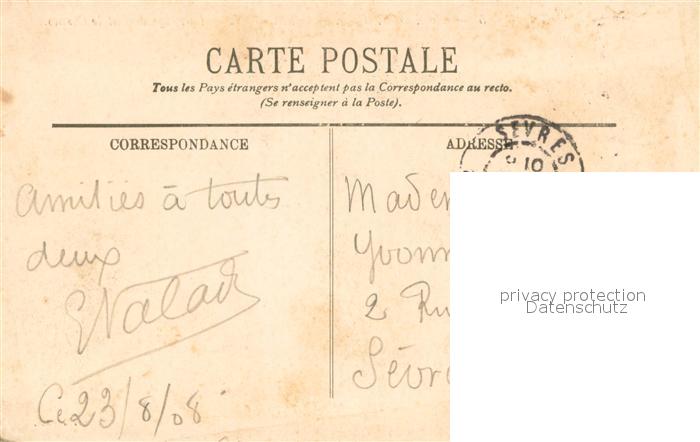 CARTE POSTALE
Tous les Pays étrangers n'acceptent pas la Correspondance au recto.
(Se renseigner à la Poste).
CORRESPONDANCE
Amitiés à toutes
deux
Ce 23/8/08
ADRESSE
SEVRES
10
Madem
Yvonn
2 Ru
Sèvre
privacy protection
Datenschutz